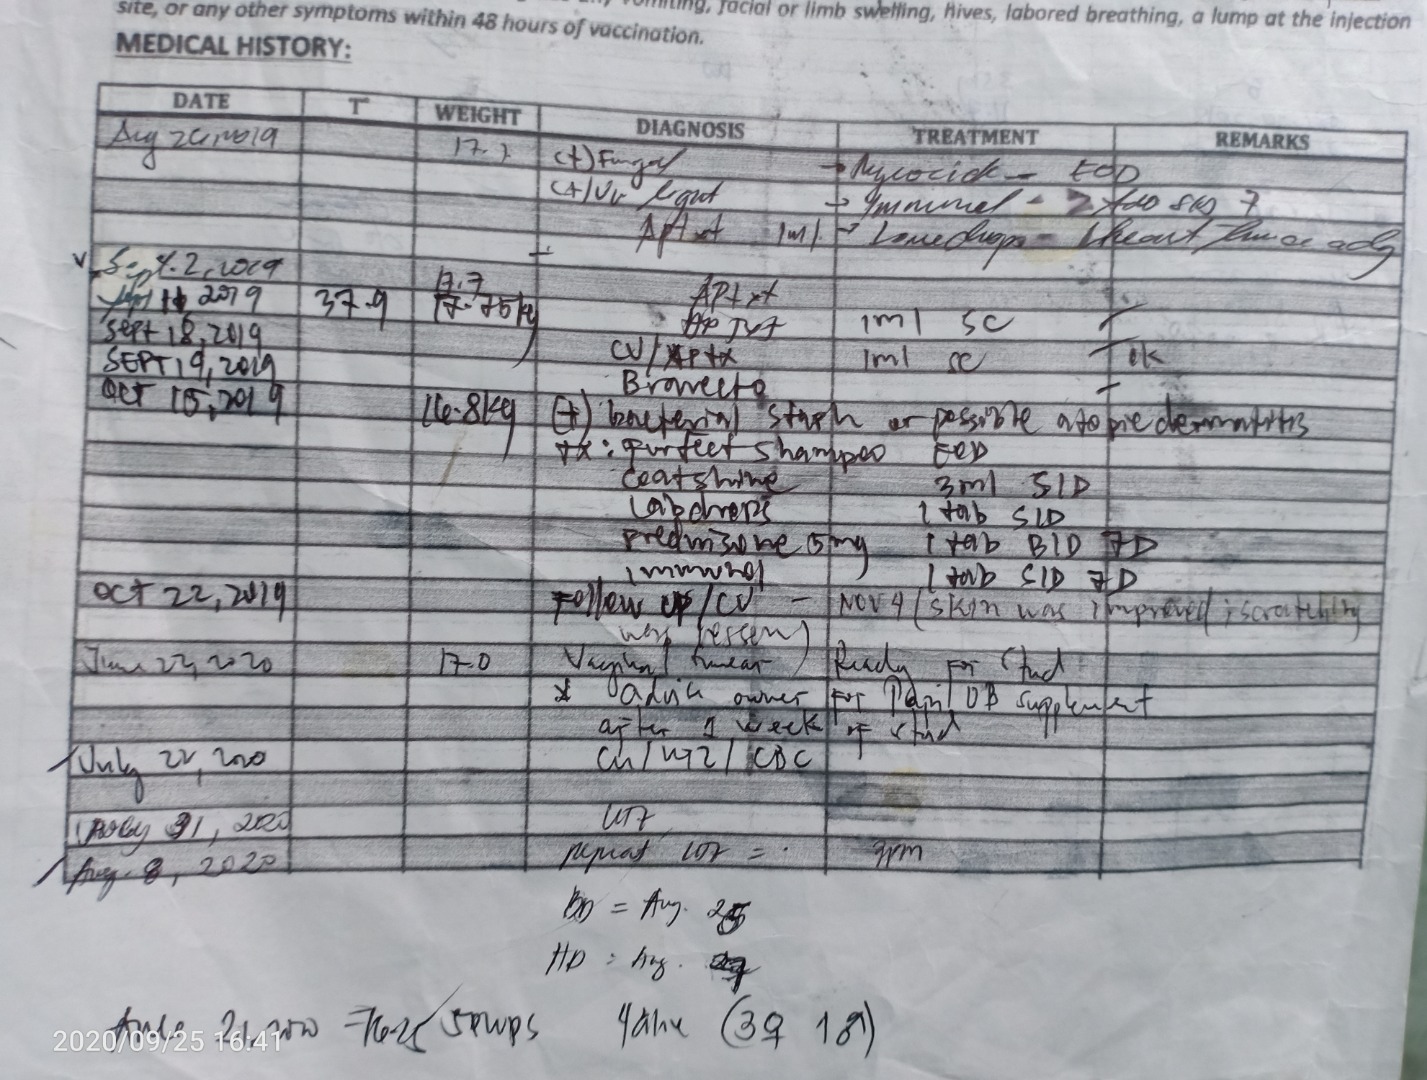 vomiting, facial or limb swelling, hives, labored breathing, a lump at the injection
site, or any other symptoms within 48 hours of vaccination.
MEDICAL HISTORY:
DATE T° WEIGHT DIAGNOSIS TREATMENT REMARKS
Aug 2019 17.7 (+) Fungal → Mycocide - EOD
(+) UV light → Immunol -
Aptxt 1ml →
Sept. 2, 2019 17.7 APtxt
2019 37.9 17.75kg AP Txt 1ml SC
Sept 18, 2019 CV/APtx 1ml SC ok
SEPT 19, 2019 Bravecto
OCT 15, 2019 16.8kg (+) bacterial staph or possible atopic dermatitis
tx: furfect shampoo EOD
coatshine 3ml SID
Labdrops 1 tab SID
prednisone 5mg 1 tab BID 7D
immunol 1 tab SID 7D
OCT 22, 2019 Follow up/CV - NOV 4 (skin was improved; scratching
was lessen)
June 22, 2020 17.0 Vaginal smear Ready For Stud
* advice owner For OB supplement
after 1 week of stud
July 22, 2020 CU/UTZ/CBC
July 31, 2020 UTZ
Aug. 8, 2020 repeat UTZ = 3pm
BD = Aug. 25
HD = Aug.
5 pups 4 alive (3♀ 1♂)
2020/09/25 16:41